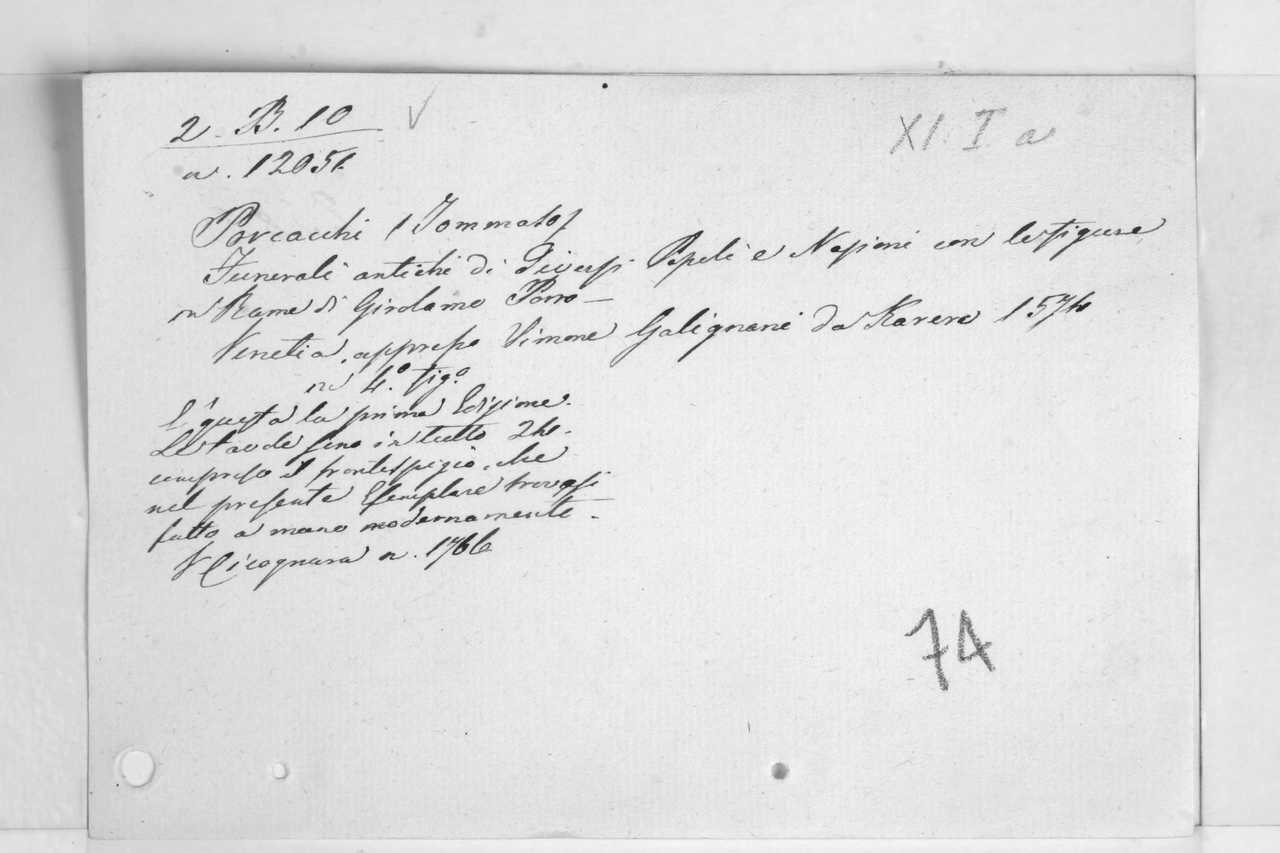 2. B. 10 √
XI. I a
n. 12051.
Porcacchi (Tommaso)
Funerali antichi di Diversi Popoli e Nazioni con le figure
in Rame di Girolamo Porro —
Venetia, appresso Simone Galignani da Karera 1574
in 4.º fig.º
E' questa la prima Edizione.
Le tavole sono in tutto 24.
compreso il frontespizio, che
nel presente Esemplare trovasi
fatto a mano modernamente.
V Cicognara n. 1766
74